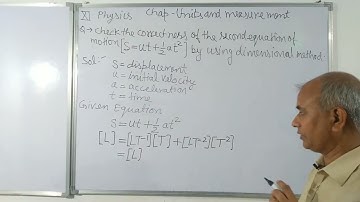 XI Physics Chap-Units and measurement
Q → check the correctness of the second equation of
motion [S=ut+½at²] by using dimensional method.
Sol:- S = displacement
u = initial velocity
a = acceleration
t = time
Given Equation
S = ut + ½ at²
[L] = [LT⁻¹][T] + [LT⁻²][T²]
= [L]